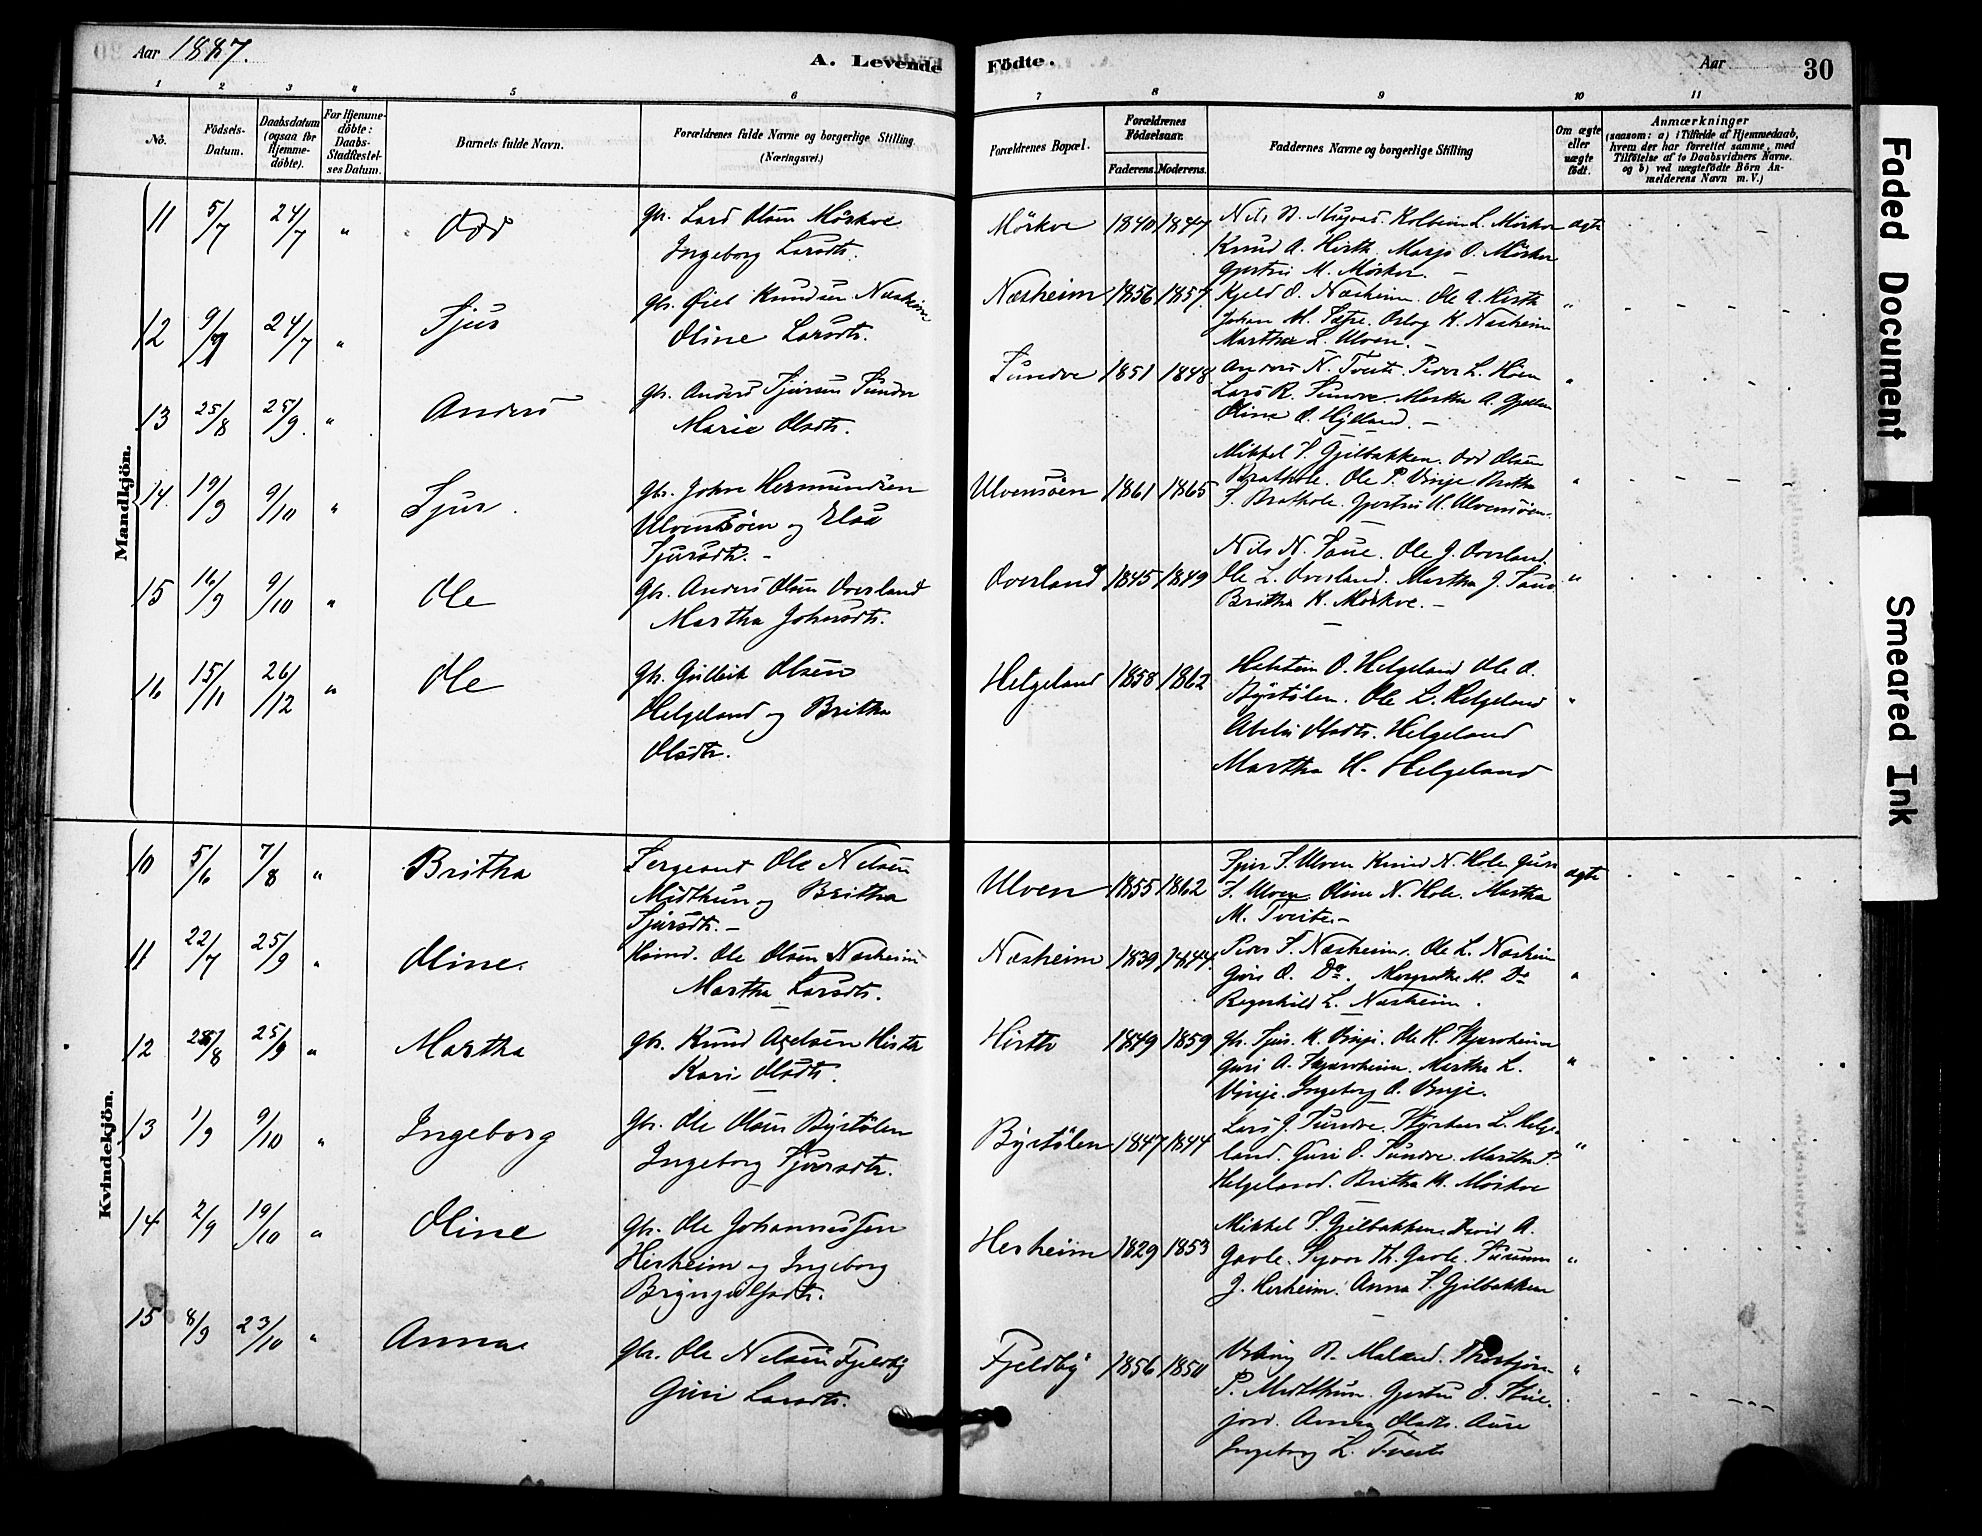 Aar 1887.
A. Levende Födte.
Aar
30
1 2 3 4 5 6 7 8 9 10 11
No.
Födsels-Datum.
Daabsdatum (ogsaa for Hjemme-döbte).
For Hjemme-döbte: Daabs-Stadfæstel-ses Datum.
Barnets fulde Navn.
Forældrenes fulde Navne og borgerlige Stilling (Næringsvei.)
Forældrenes Bopæl.
Forældrenes Födselsaar.
Faderens. Moderens.
Faddernes Navne og borgerlige Stilling
Om ægte eller uægte födt.
Anmærkninger
(saasom: a) i Tilfælde af Hjemmedaab, hvem der har forrettet samme, med Tilföielse af to Daabsvidners Navne. og b) ved uægtefödte Börn An-melderens Navn m. V.)
Mandkjön.
11 5/7 24/7 " Odd
Gbr. Lars Olsen Mörkve
Ingeborg Larsdtr.
Mörkve 1840 1847
Kolbein L. Mörkve
Knud A. Hirth. Marjo O. Mörkve
Gjertru M. Mörkve
ægte
12 24/7 " Sjur
Gbr. Knudsen Næsheim
Oline Larsdtr.
Næsheim 1856 1857
Kjeld O. Næsheim. Ole A. Hirth
Johan M. Oslog K. Næsheim
Martha L. Ulven.
"
13 25/8 25/9 " Anders
Gbr. Anders Sjursen Sundve
Marie Olsdtr.
Sundve 1851 1848
Anders N. Tveite. Peder L. Höen
Lars R. Sundve. Martha A.
Oline O. Hylland.
"
14 19/9 9/10 " Sjur
Gbr. John Hermundsen
Ulvensöen og Elsa
Sjursdtr.
Ulvensöen 1861 1865
Mikkel S. Gjelbakken. Odd Olsen
Brathole. Ole P. Vinje. Britha
S. Brathole. Gjertru H. Ulvensöen.
"
15 16/9 9/10 " Ole
Gbr. Anders Olsen Overland
Martha Johnsdtr.
Overland 1845 1849
Nils N. Saue. Ole J. Overland.
Ole L. Overland. Martha J. Saue
Britha K. Mörkve.
"
16 15/11 26/12 " Ole
Gbr. Gulleik Olsen
Helgeland og Britha
Olsdtr.
Helgeland 1858 1862
O. Helgeland Ole O.
Bystölen. Ole L. Helgeland
Olsdtr. Helgeland
Martha H. Helgeland
"
Kvindekjön.
10 5/6 7/8 " Britha
Sergeant Ole Nelsen
Midthun og Britha
Sjursdtr.
Ulven 1855 1862
Sjur S. Ulven Knud N. Hole Guri
S. Ulven Oline N. Hole. Martha
M. Tveite
ægte
11 22/7 25/9 " Oline.
Ole Olsen Næsheim
Martha Larsdtr.
Næsheim 1839 1844
Peder S. Næsheim. Ole L. Næsheim
Guri O. Do. Margrethe M. Do
Ragnhild L. Næsheim.
"
12 25/9 " Martha
Gbr. Knud Axelsen Hirth
Kari Olsdtr.
Hirth 1849 1859
Gbr. Sjur K. Vinje. Ole H. Skjerveheim
Guri A. Skjerveheim. Martha L.
Vinje. Ingeborg O. Vinje.
"
13 1/9 9/10 " Ingeborg
Gbr. Ole Olsen Bystölen
Ingeborg Sjursdtr.
Bystölen 1847 1844
Lars J. Sundve. L. Helge-
land. Guri O. Sundve. Martha
Helgeland. Britha K. Mörkve
"
14 2/9 19/10 " Oline
Gbr. Ole Johannessen
Herheim og Ingeborg
Brynjulfsdtr.
Herheim 1829 1853
Mikkel S. Gjelbakken. A.
Gavle. Th. Gavle.
J. Herheim. Anna S. Gjelbakken
"
15 8/9 23/10 " Anna
Gbr. Ole Nelsen Fjeldby
Guri Larsdtr.
Fjeldby 1856 1850
Thorbjörn
P. Midthun. Gjertru O.
Anna Olsdtr.
Ingeborg L. Tveite
"
Faded Document
Smeared Ink